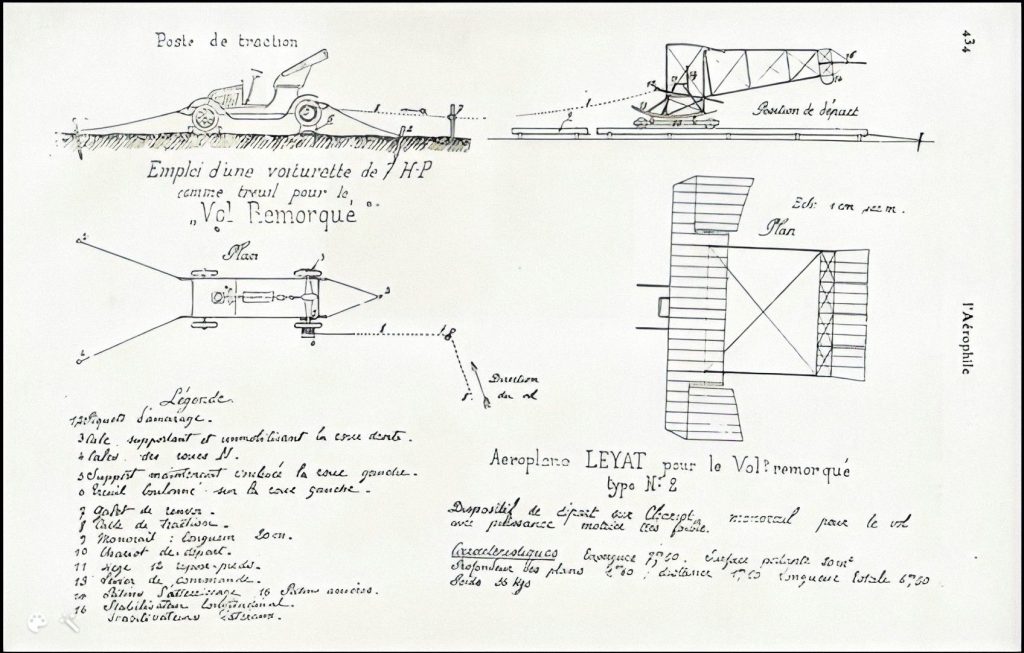 Poste de traction
Emploi d'une voiturette de 7 H-P
comme treuil pour le
„Vol Remorqué"
Plan
Direction
du vol
Légende.
1,2 Piquets d'amarage.
3 Cale supportant et immobilisant la roue droite.
4 Cales des roues
5 Support maintenant la roue gauche.
6 Treuil boulonné sur la roue gauche.
7 Galet de renvoi.
8 Cable de traction.
9 Monorail : longueur 20 cm.
10 Chariot de départ.
11 siège 12 repose-pieds.
13 Levier de commande.
14 Patins d'atterrissage 15 Patins arrières.
16 Stabilisateur longitudinal.
Position de départ
Ech: 1 cm m.
Plan
Aeroplane LEYAT pour le Vol remorqué
type No 2
Dispositif de départ sur Chariot monorail pour le vol
avec puissance motrice très faible.
Caractéristiques Envergure Surface portante 20 m²
Profondeur des plans distance longueur totale
Poids 55 kgs
434
l'Aérophile